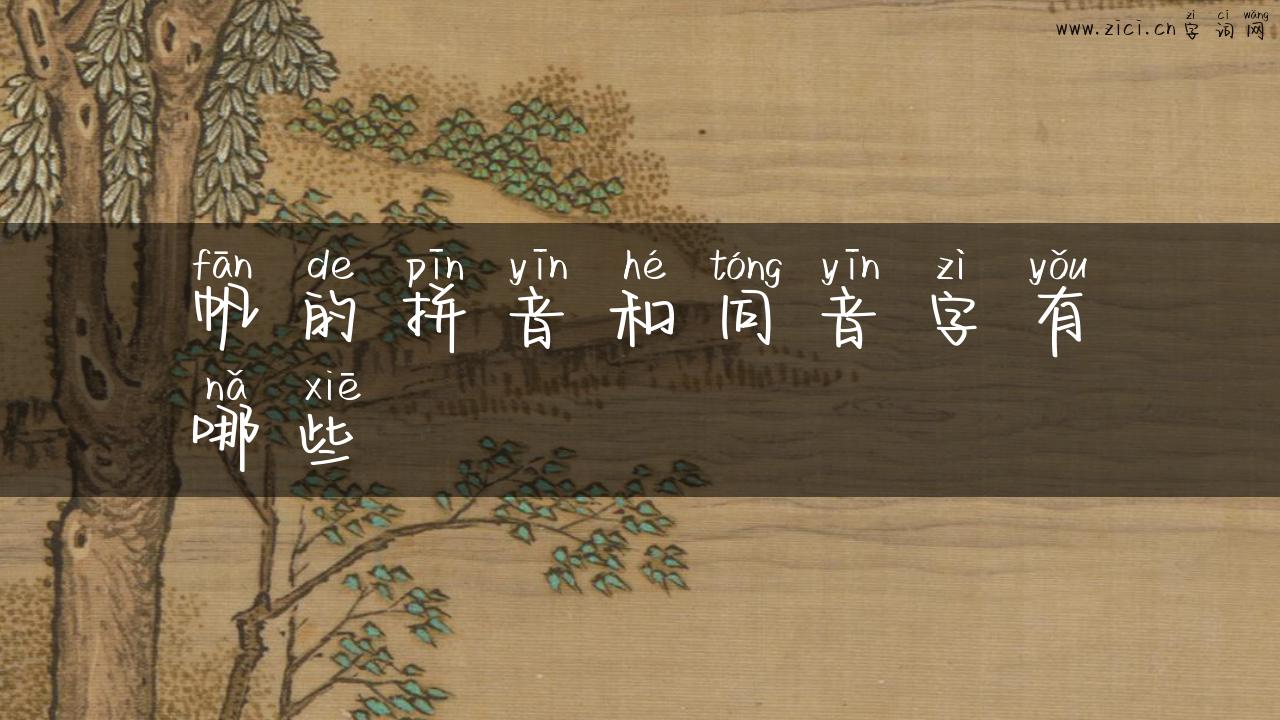 zì cí wǎng
www.zici.cn 字词网
fān de pīn yīn hé tóng yīn zì yǒu
帆的拼音和同音字有
nǎ xiē
哪些